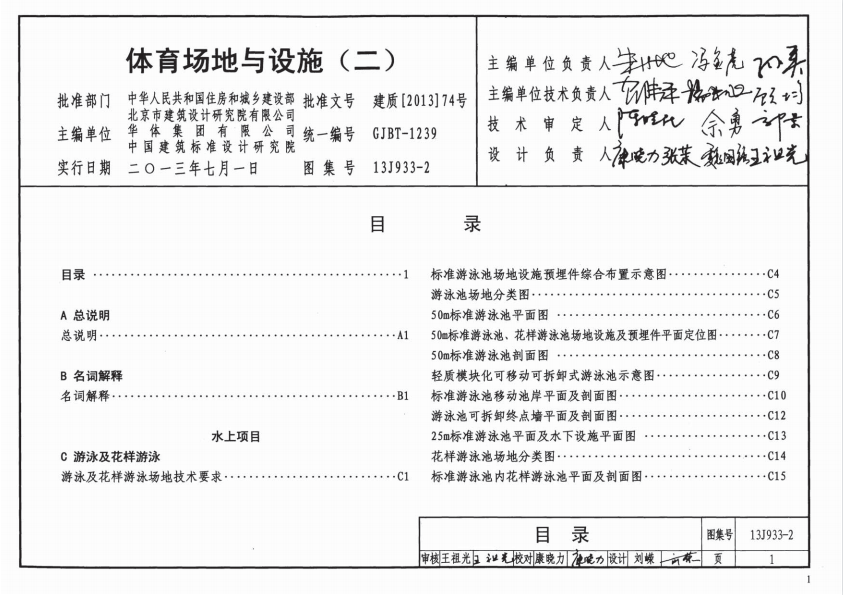 体育场地与设施（二）
批准部门 中华人民共和国住房和城乡建设部 批准文号 建质[2013]74号
主编单位 北京市建筑设计研究院有限公司 华体集团有限公司 中国建筑标准设计研究院 统一编号 GJBT-1239
实行日期 二〇一三年七月一日 图集号 13J933-2
主编单位负责人
主编单位技术负责人
技术审定人 余勇
设计负责人 康晓力 张荣 王祖光
目 录
目录 ················································1
A 总说明
总说明················································A1
B 名词解释
名词解释················································B1
水上项目
C 游泳及花样游泳
游泳及花样游泳场地技术要求······························C1
标准游泳池场地设施预埋件综合布置示意图················C4
游泳池场地分类图········································C5
50m标准游泳池平面图 ····································C6
50m标准游泳池、花样游泳池场地设施及预埋件平面定位图······C7
50m标准游泳池剖面图 ····································C8
轻质模块化可移动可拆卸式游泳池示意图··················C9
标准游泳池移动池岸平面及剖面图························C10
游泳池可拆卸终点墙平面及剖面图························C12
25m标准游泳池平面及水下设施平面图 ····················C13
花样游泳池场地分类图····································C14
标准游泳池内花样游泳池平面及剖面图····················C15
目 录 图集号 13J933-2
审核 王祖光 王祖光 校对 康晓力 康晓力 设计 刘嵘 页 1
1